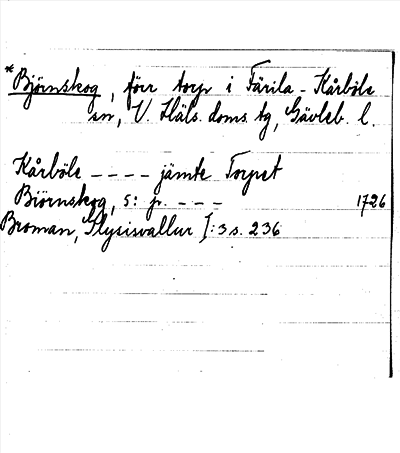 *Björnskog, förr torp i Färila-Kårböle
sn, V. Häls. doms. tg, Gävleb. l.
Kårböle - - - - jämte Torpet
Biörnskog, s: p. - - - 1726
Broman, Glysisvallur I:3 s. 236